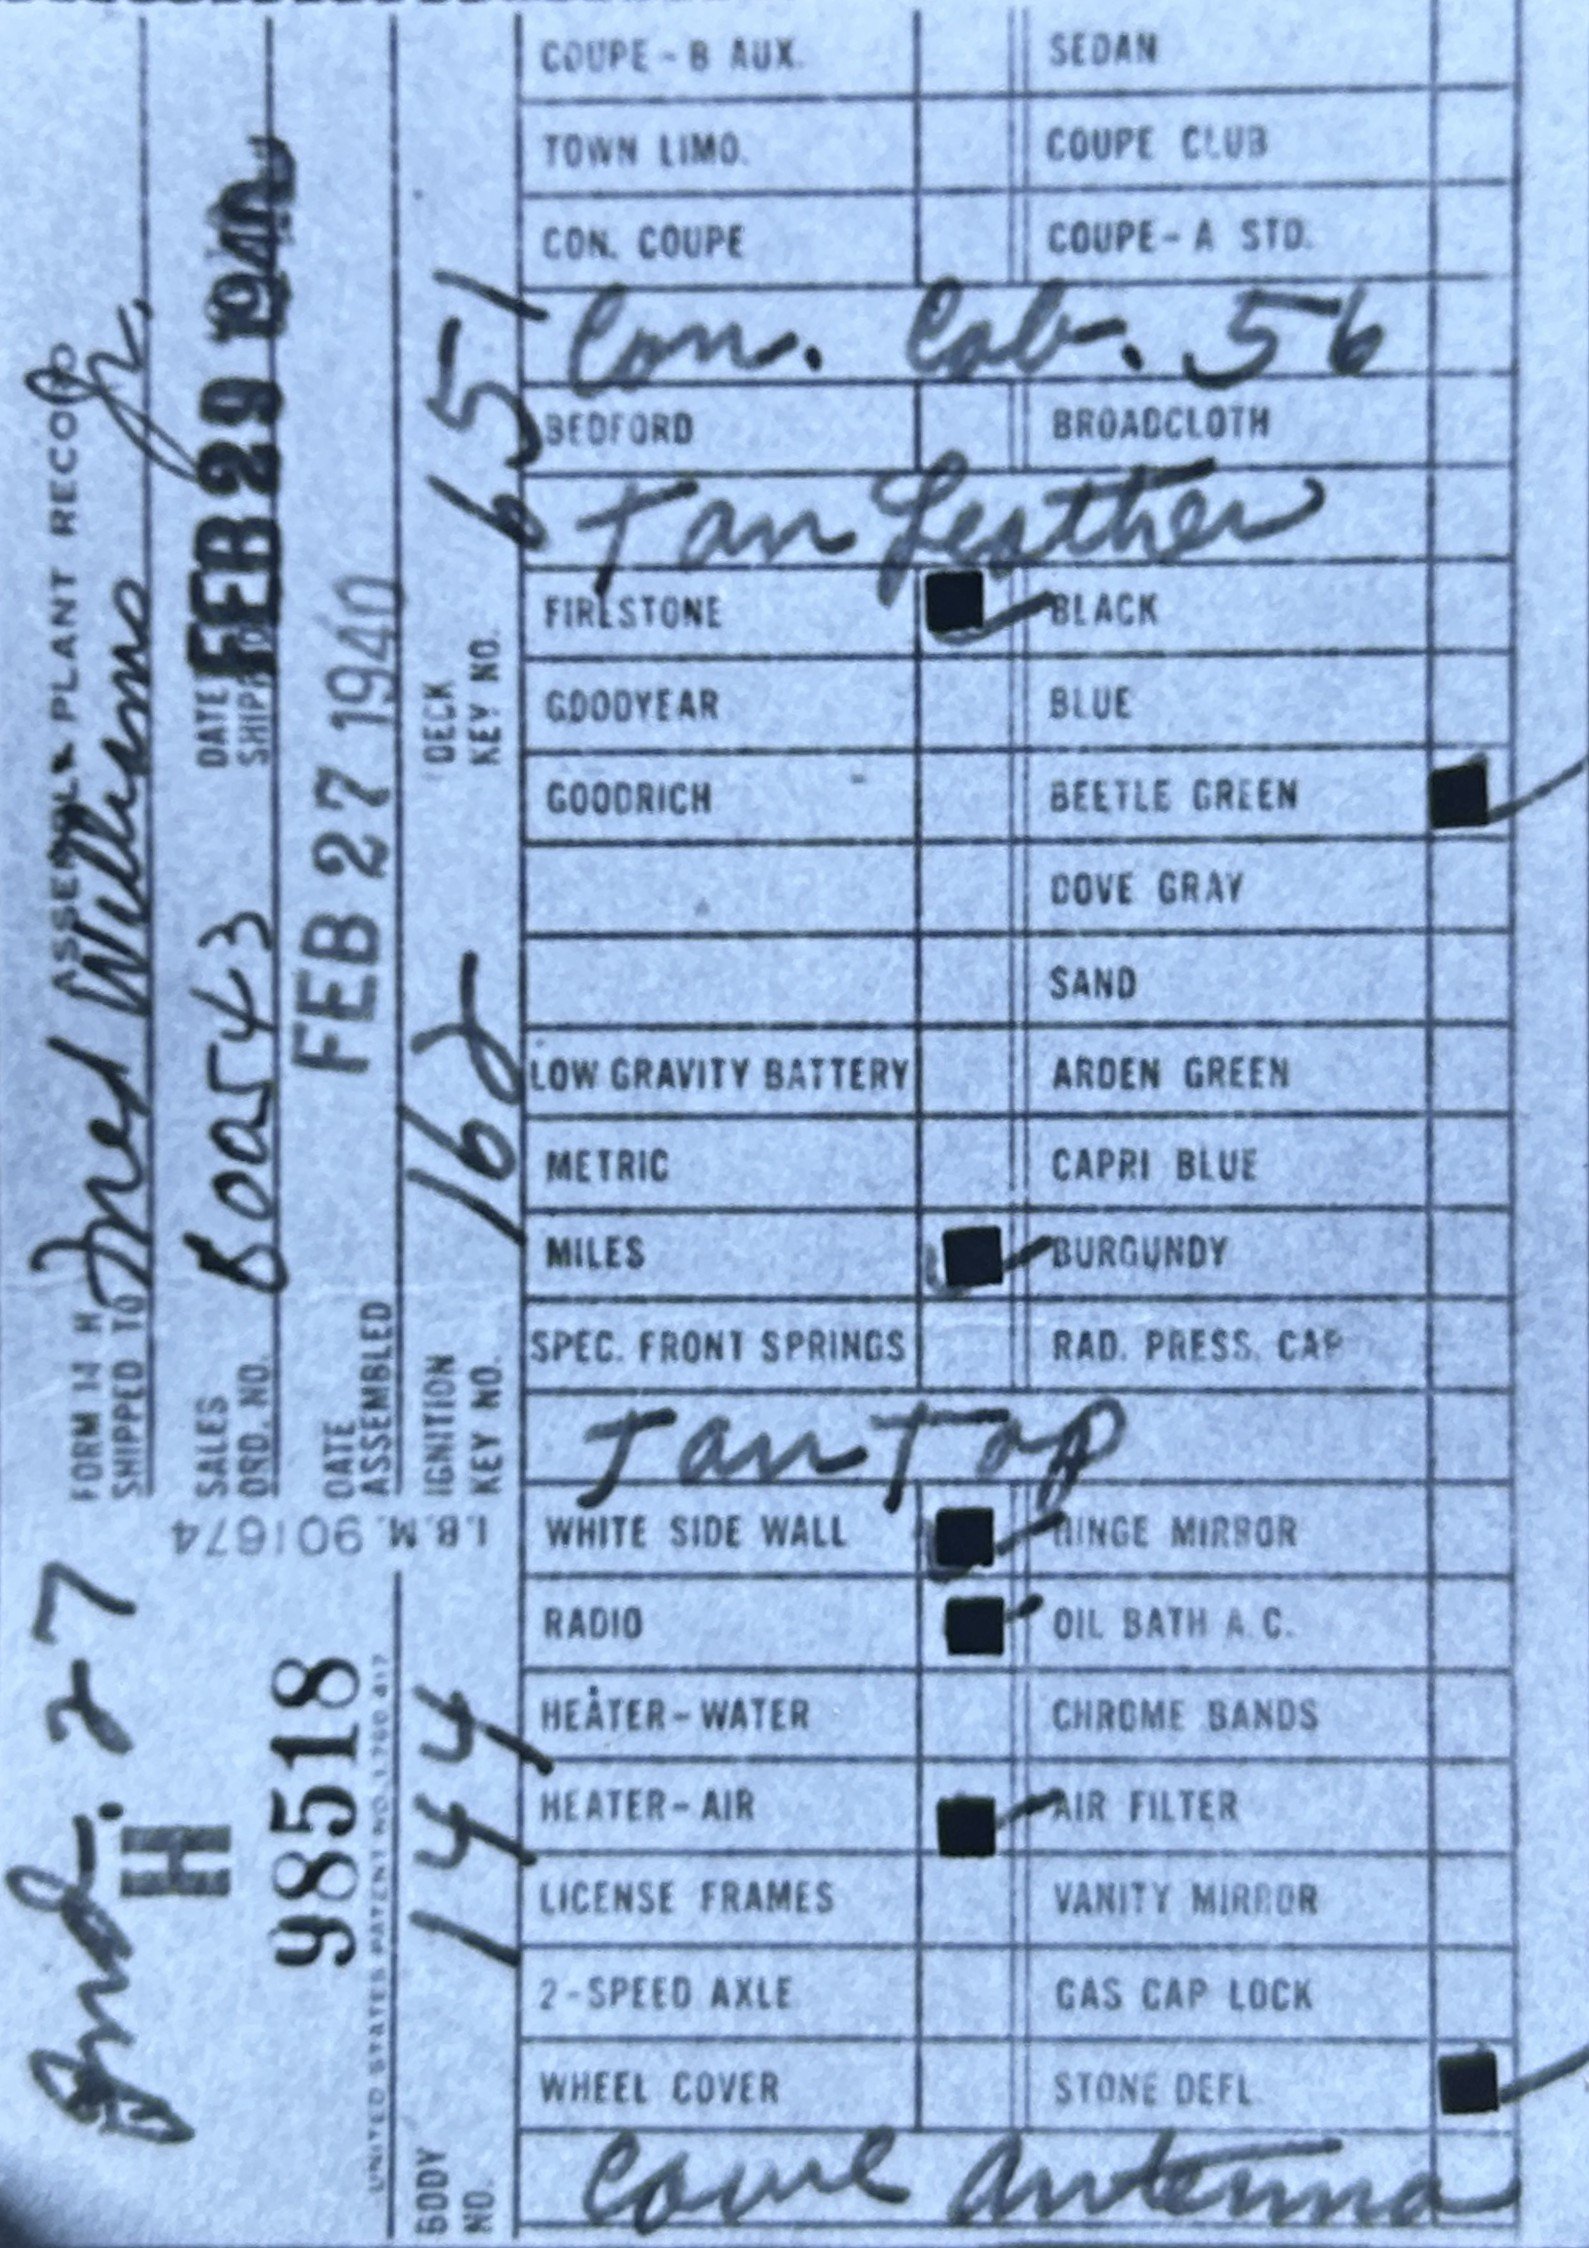 FORM 14 H ASSEMBLY PLANT RECORD
SHIPPED TO Williams Jr.
SALES ORD. NO. DATE SHIPPED FEB 29 1940
DATE ASSEMBLED FEB 27 1940
IGNITION KEY NO. 162 DECK KEY NO. 651
I.B.M. 901674
27
H
98518
UNITED STATES PATENT NO. 1,780,417
BODY NO. 144
COUPE - B AUX. SEDAN
TOWN LIMO. COUPE CLUB
CON. COUPE COUPE - A STD.
Con. Cab. 56
BEDFORD BROADCLOTH
Tan Leather
FIRESTONE BLACK
GOODYEAR BLUE
GOODRICH BEETLE GREEN
DOVE GRAY
SAND
LOW GRAVITY BATTERY ARDEN GREEN
METRIC CAPRI BLUE
MILES BURGUNDY
SPEC. FRONT SPRINGS RAD. PRESS. CAP
Tan Top
WHITE SIDE WALL HINGE MIRROR
RADIO OIL BATH A.C.
HEATER - WATER CHROME BANDS
HEATER - AIR AIR FILTER
LICENSE FRAMES VANITY MIRROR
2 - SPEED AXLE GAS CAP LOCK
WHEEL COVER STONE DEFL.
Cowl Antenna